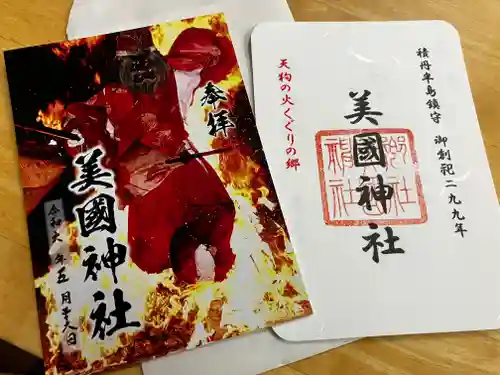 奉拝
美國神社
令和六年五月十六日
積丹半島鎮守 御創祀二九九年
美國神社
天狗の火くぐりの郷